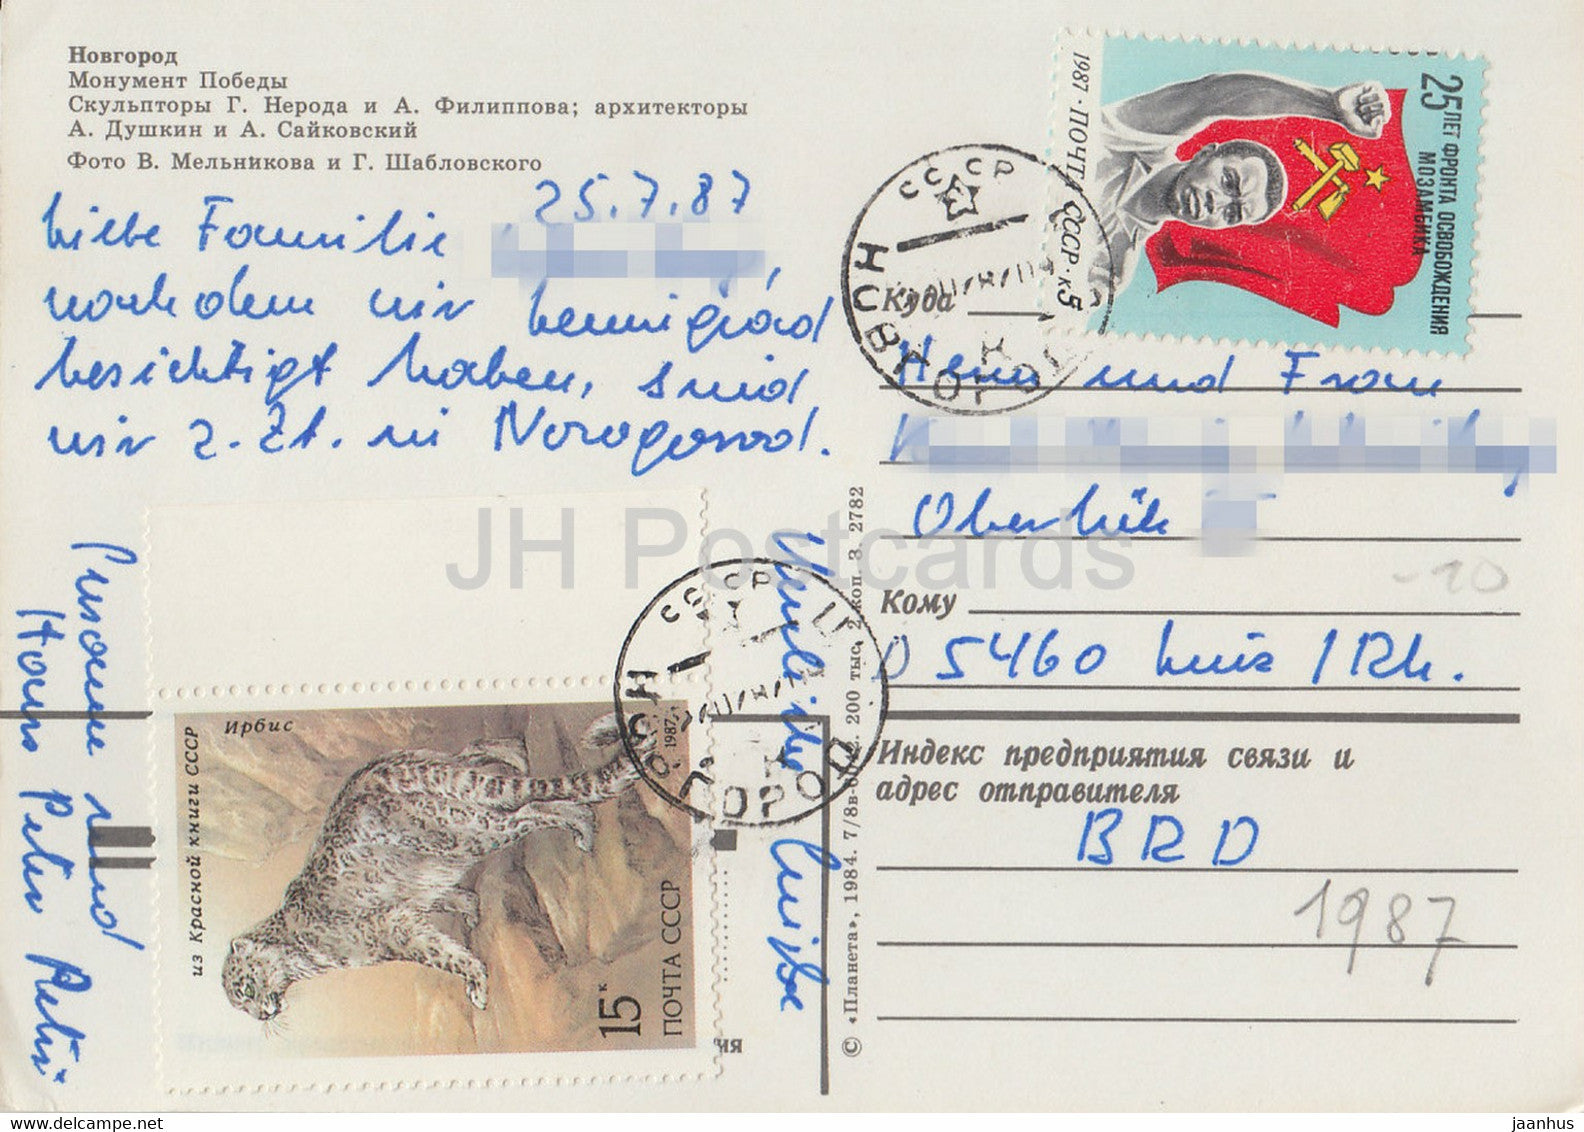 Новгород
Монумент Победы
Скульпторы Г. Нерода и А. Филиппова; архитекторы
А. Душкин и А. Сайковский
Фото В. Мельникова и Г. Шабловского
25.7.87
Liebe Familie
nachdem wir Leningrad
besichtigt haben, sind
wir z. Zt. in Novogorod.
Herzliche Grüße
Susanne und
Hans Peter
25 ЛЕТ ФРОНТА ОСВОБОЖДЕНИЯ
МОЗАМБИКА
1987 · ПОЧТА СССР · К5
СССР
НОВГОРОД
Куда
Herrn und Frau
Oberlük
Кому
D 5460 Linz / Rh.
Индекс предприятия связи и
адрес отправителя
BRD
1987
-10
из Красной книги СССР
Ирбис
1987
15к
ПОЧТА СССР
СССР
© «Планета», 1984. 200 тыс. 2 коп. З. 2782
JH Postcards
jaanhus
delcampe.net